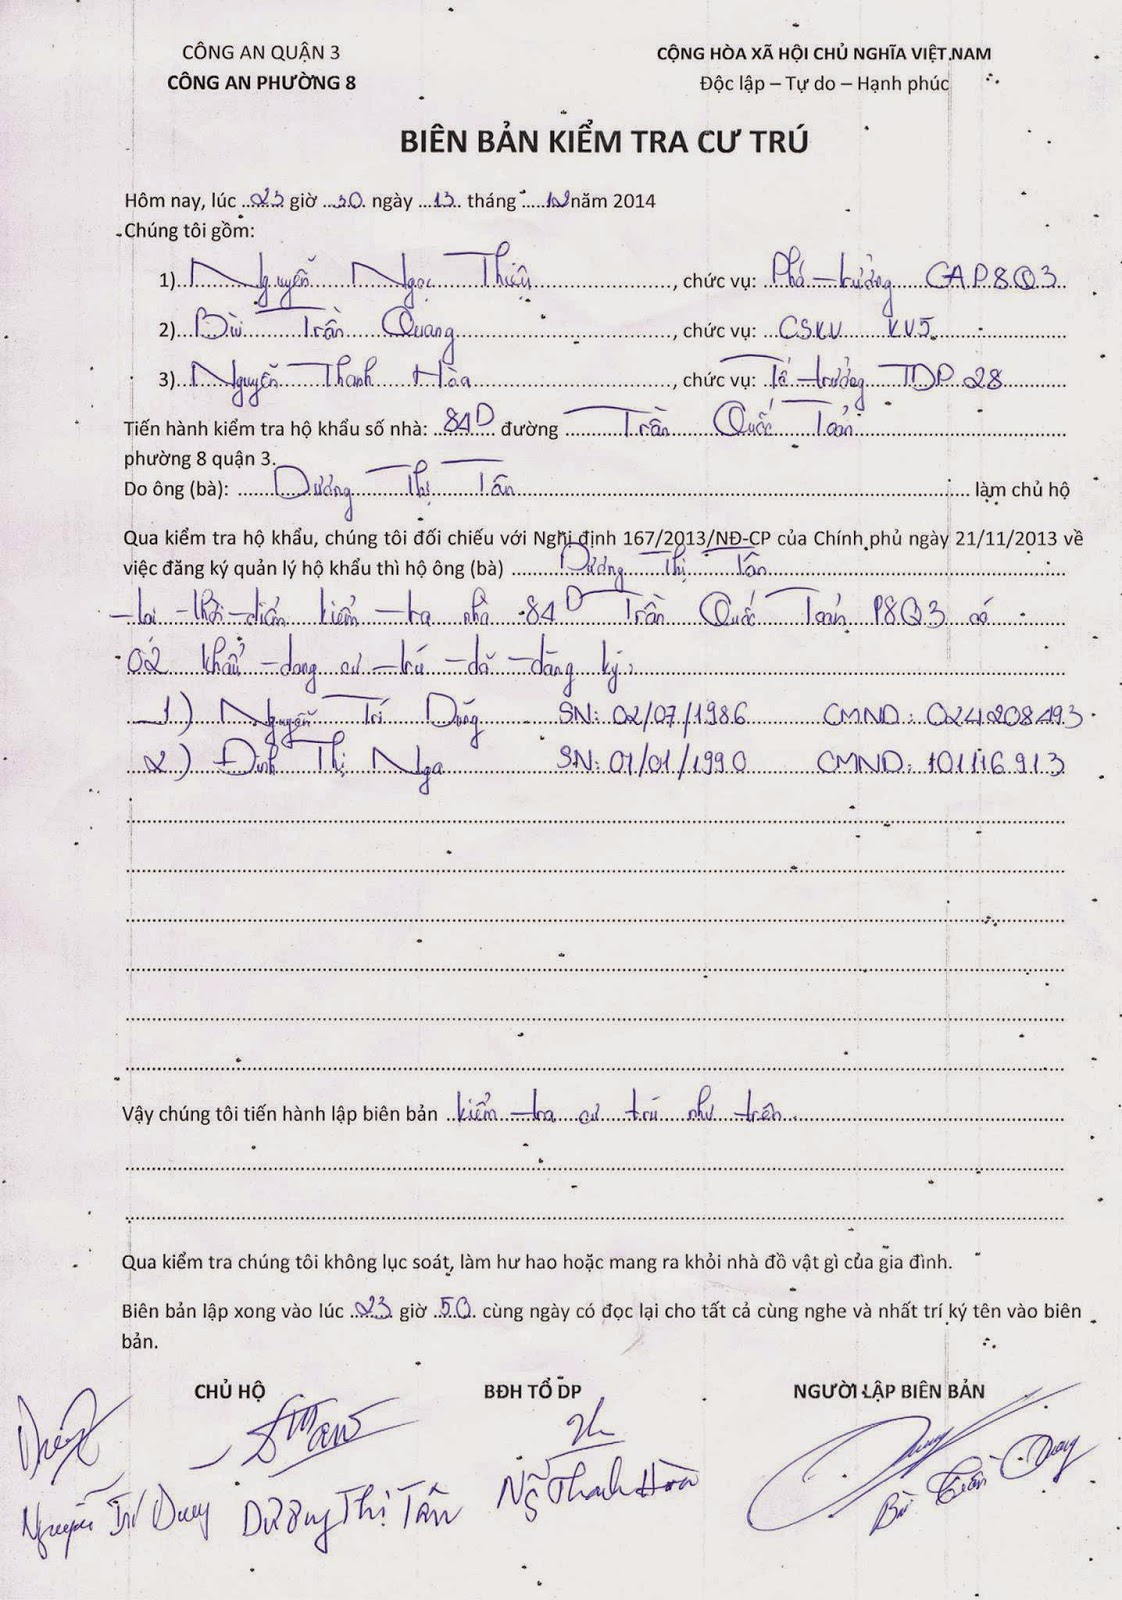 CÔNG AN QUẬN 3
CÔNG AN PHƯỜNG 8
CỘNG HÒA XÃ HỘI CHỦ NGHĨA VIỆT NAM
Độc lập – Tự do – Hạnh phúc
BIÊN BẢN KIỂM TRA CƯ TRÚ
Hôm nay, lúc 23 giờ 30 ngày 13 tháng 12 năm 2014
Chúng tôi gồm:
1) Nguyễn Ngọc Thiện, chức vụ: Phó trưởng CAP8Q3
2) Bùi Trần Quang, chức vụ: CSKV KV5
3) Nguyễn Thanh Hòa, chức vụ: Tổ trưởng TDP 28
Tiến hành kiểm tra hộ khẩu số nhà: 84D đường Trần Quốc Toản
phường 8 quận 3.
Do ông (bà): Dương Thị Tân làm chủ hộ
Qua kiểm tra hộ khẩu, chúng tôi đối chiếu với Nghị định 167/2013/NĐ-CP của Chính phủ ngày 21/11/2013 về
việc đăng ký quản lý hộ khẩu thì hộ ông (bà) Dương Thị Tân
tại thời điểm kiểm tra nhà 84D Trần Quốc Toản P8Q3 có
02 khẩu đang cư trú đã đăng ký:
1) Nguyễn Trí Dũng SN: 02/07/1986 CMND: 024208493
2) Đinh Thị Nga SN: 07/01/1990 CMND: 101116913
Vậy chúng tôi tiến hành lập biên bản kiểm tra cư trú như trên.
Qua kiểm tra chúng tôi không lục soát, làm hư hao hoặc mang ra khỏi nhà đồ vật gì của gia đình.
Biên bản lập xong vào lúc 23 giờ 50 cùng ngày có đọc lại cho tất cả cùng nghe và nhất trí ký tên vào biên
bản.
CHỦ HỘ BĐH TỔ DP NGƯỜI LẬP BIÊN BẢN
Nguyễn Trí Dũng Dương Thị Tân Ng Thanh Hòa Bùi Trần Quang